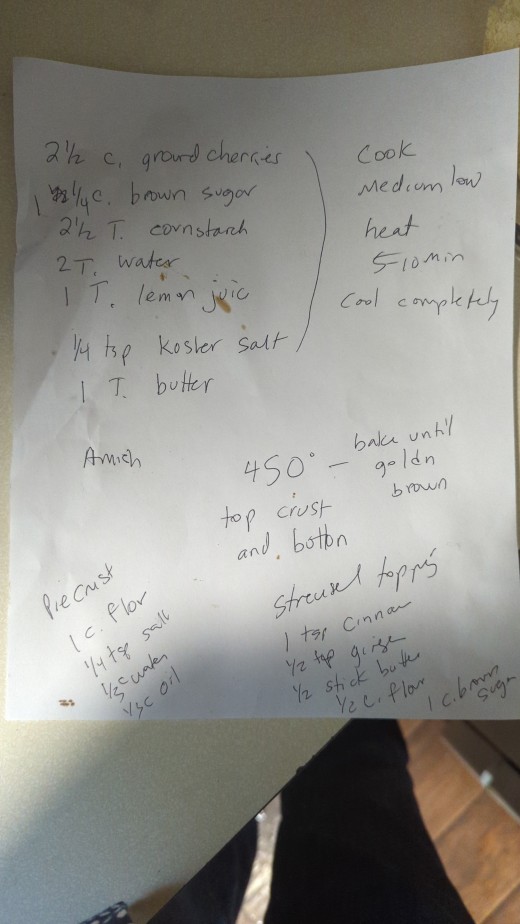 2 1/2 c. ground cherries
1 1/4 c. brown sugar
2 1/2 T. cornstarch
2 T. water
1 T. lemon juic
1/4 tsp kosher salt
1 T. butter
Cook
Medium low
heat
5-10 min
Cool completely
Amish
450° - bake until
goldn
brown
top crust
and botton
Pie Crust
1 c. flor
1/4 tsp salt
1/3 c water
1/3 c oil
Streusel topping
1 tsp cinnam
1/2 tsp
1/2 stick butter
1/2 c. flour
1 c. brown
sugar